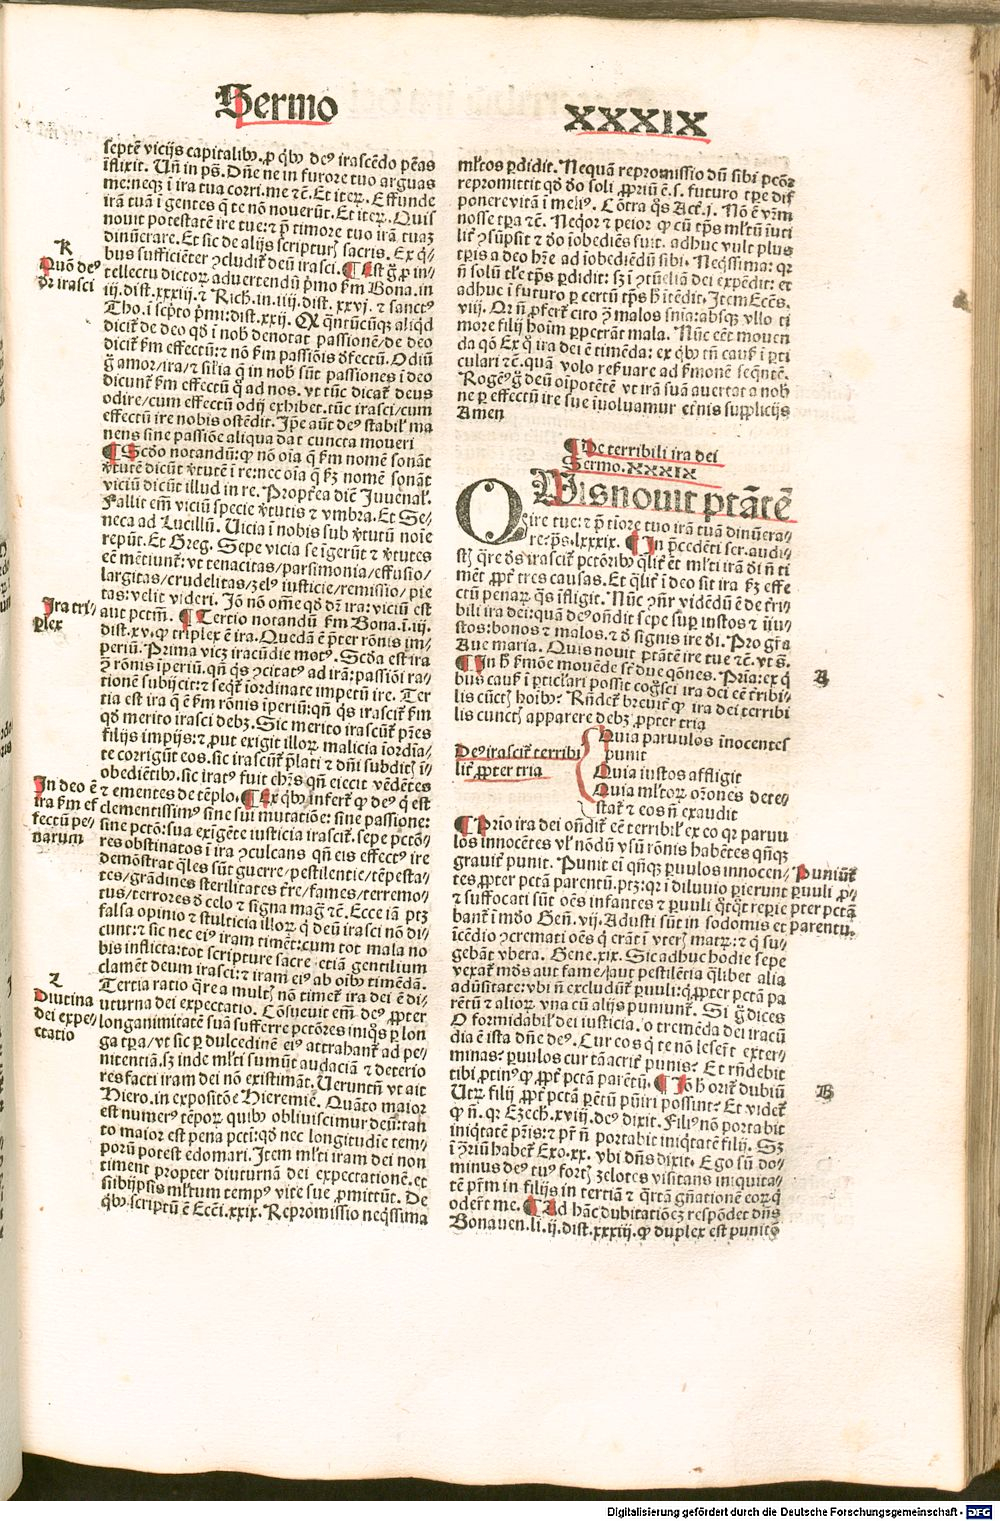 Sermo
XXXIX
septē vicijs capitalibꝰ, ꝓ qͥbꝰ deꝰ irascēdo pēas
īflixit. Uñ in ps̄. Dñe ne in furore tuo arguas
me: neqꝫ ī ira tua corri. me ⁊c̄. Et iteꝝ. Effunde
irā tuā ī gentes q̄ te nō nouerūt. Et iteꝝ. Quis
nouit potestatē ire tue: ⁊ p̄ timore tuo irā tuaꝫ
dinūerare. Et sic de alijs scripturꝭ sacris. Ex qͥ-
bus sufficiēter ꝯcludit̄ deū irasci. ¶ Est gͦ ꝓ in-
tellectu dictoꝝ aduertendū pͥmo ẜm Bona. in
iij. dist. xxxiij. ⁊ Rich. in. iiij. dist. xxvj. ⁊ sanctꝰ
Tho. ī scp̄to pͥmi: dist. xxij. Qꝫ qn̄tūcūqꝫ aliqd̄
dicit̄ de deo qd̄ ī nob̄ denotat passionē/ de deo
dicit̄ ẜm effectū: ⁊ nō ẜm passiōis defectū. Odiū
gͦ amor/ ira/ ⁊ silia q̄ in nob̄ sūt passiones ī deo
dicunt̄ ẜm effectū q̄ ad nos. vt tūc dicat̄ deus
odire/ cum effectū odij exhibet. tūc irasci/ cum
effectū ire nobis ostēdit. Ip̄e aūt deꝰ stabilꝭ ma
nens sine passiōe aliqua dat cuncta moueri
¶ Scd̄o notandū: ꝙ nō oīa q̄ ẜm nomē sonāt
v̄tutē dicūt v̄tutē ī re: nec oīa q̄ ẜꝫ nomē sonāt
viciū dicūt illud in re. Propt̄ea dic̄ Juuenalꝭ.
Fallit em̄ viciū specie v̄tutis ⁊ vmbra. Et Se-
neca ad Lucillū. Uicia ī nobis sub v̄tutū noīe
repūt. Et Greg. Sepe vicia se īgerūt ⁊ v̄tutes
eē mētiunt̄: vt tenacitas/ parsimonia/ effusio/
largitas/ crudelitas/ zelꝰ iusticie/ remissio/ pie
tas: velit videri. Jō nō om̄e qd̄ dr̄ ira: viciū est
aut pctm̄. ¶ Tertio notandū ẜm Bona. ī. iij.
dist. xv. ꝙ triplex ē ira. Quedā ē p̄ter rōnis im-
periū. Prima vicꝫ iracūdie motꝰ. Scd̄a est ira
ꝯ rōnis īperiū. qn̄ qs̄ ꝯcitatꝰ ad irā: passiōi ra-
tionē subijcit: ⁊ seqt̄ īordinate impetū ire. Ter
tia est ira q̄ ē ẜm rōnis īperiū: qn̄ qs̄ irascit̄ ẜm
qd̄ merito irasci debꝫ. Sic merito irascūt̄ pr̄es
filijs impijs: ⁊ ꝓut exigit illoꝝ malicia iordīa-
te corrigūt eos. sic irascūt̄ p̄lati ⁊ dn̄i subditꝭ ī-
obediētibꝰ. sic iratꝰ fuit chr̄s qn̄ eiecit vēdētes
⁊ ementes de tēplo. ¶ Ex qͥbꝰ infert̄ ꝙ deꝰ q̄ est
clementissimꝰ sine sui mutatiōe: sine passione:
sine pctō: sua exigēte iusticia irascit̄. sepe pctō-
res obstinatos ī ira ꝯculcans qn̄ eis effectꝰ ire
demōstrat qͣles sūt guerre/ pestilentie/ tēpesta-
tes/ grādines sterilitates tr̄e/ fames/ terremo-
tus/ terrores de celo ⁊ signa maḡ ⁊c̄. Ecce iā ptꝫ
falsa opinio ⁊ stulticia illoꝝ q̄ deū irasci nō di-
cunt: ⁊ sic nec eiꝰ iram timēt: cum tot mala no
bis inflicta: tot scripture sacre etiā gentilium
clamēt deum irasci: ⁊ iram eiꝰ ab oībꝰ timēdā.
Tertia ratio qͣre a multꝭ nō timet̄ ira dei ē di-
uturna dei expectatio. Cōsueuit em̄ deꝰ ꝓpter
longanimitatē suā sufferre pctōres iniqͦs ꝑ lon
ga tꝑa/ vt sic ꝑ dulcedinē eiꝰ attrahant̄ ad pe-
nitentiā. sꝫ inde ml̄ti sumūt audaciā ⁊ deterio
res facti iram dei nō existimāt. Ueruntn̄ vt ait
Hiero. in expositōe Hieremie. Quāto maior
est numerꝰ tēpoꝝ quibꝰ obliuiscimur deū: tan
to maior est pena pcti: qd̄ nec longitudīe tem-
porū potest edomari. Item ml̄ti iram dei non
timent propter diuturnā dei expectationē. et
sibijpsis ml̄tum tempꝰ vite sue ꝓmittūt. De
qͥbꝰ scriptū ē Ecc̄i. xxix. Repromissio neqͥssima
K
Quō deꝰ
dr̄ irasci
Ira tri-
plex
In deo ē
ira ẜm ef
fectū pe-
narum
L
Diutina
dei expe-
ctatio
ml̄tos ꝑdidit. Nequā repromissio dū sibi pctōꝝ
repromittit qd̄ do soli ꝓpriū ē. s. futuro tꝑe dis
ponere vitā ī meliꝰ. Cōtra qͦs Act̄. j. Nō ē vr̄m
nosse tꝑa ⁊c̄. Neqͦꝝ ⁊ peior ꝙ cū tp̄s ml̄tū īuti
lit̄ ꝯsūpsit ⁊ do īobediēs fuit. adhuc vult plus
tꝑis a deo hr̄e ad iobediēdū sibi. Neqͥssima: qꝛ
ñ solū tl̄e tp̄s ꝑdidit: sꝫ ī ꝯtūeliā dei expēdit: et
adhuc ī futuro ꝑ certū tp̄s h̄ itēdit. Itē Ecc̄s.
viij. Qꝛ ñ ꝓfert̄ cito ꝯ malos snīa: absqꝫ vllo ti
more filij hoīm ꝑpetrāt mala. Nūc eēt mouen
da qō Ex q̄ ira dei ē timēda: ex qͥbꝰ tn̄ causꝭ ī ꝑti
culari ⁊c̄. quā volo reẜuare ad ẜmonē seqn̄tē.
Rogēꝰ gͦ deū oīpotētē vt irā suā auertat a nob̄
ne ꝑ effectū ire sue īuoluamur eternis supplicijs
Amen
¶ De terribili ira dei
Sermo. XXXIX
QUis nouit ptātē
ire tue: ⁊ p̄ tīore tuo irā tuā dinūera-
re: ps̄. lxxxix. ¶ In p̄cedēti ser. audi-
stꝭ qͣre ds̄ irascit̄ pctōribꝰ qͣlit̄ ēt ml̄ti irā di ñ ti
mēt ꝓpt̄ tres causas. Et qͣlit̄ ī deo sit ira ẜꝫ effe
ctū penaꝝ qͣs īfligit. Nūc ꝯn̄r videdū ē de t̄ri-
bili ira dei: quā deꝰ on̄dit sepe suꝑ iustos ⁊ īiu-
stos: bonos ⁊ malos. ⁊ de signis ire di. Pro gr̄a
Aue maria. Quis nouit ptātē ire tue ⁊c̄. vt s̄.
¶ In h̄ ẜmōe mouēde se̅ due qōnes. Pria: ex q̄
bus causꝭ ī ꝑticlari possit cogͦsci ira dei eē t̄ribi-
lis cūctꝭ hoībꝰ. Rn̄det̄ breuit̄ ꝙ ira dei terribi
lis cunctꝭ apparere debꝫ ꝓpter tria
Deꝰ irascit̄ terribi
lit̄ ꝓpter tria
Quia paruulos īnocentes
punit
Quia iustos affligit
Quia ml̄toꝝ orōnes dete-
stat̄ ⁊ eos ñ exaudit
¶ Prīo ira dei on̄dit̄ eē terribilꝭ ex eo qꝛ paruu
los innocētes vl̄ nōdū vsū rōnis habētes qn̄qꝫ
grauit̄ punit. Punit eī qn̄qꝫ ꝑuulos innocen-
tes ꝓpter pctā parentū. ptꝫ: qꝛ ī diluuio ꝑierunt ꝑuuli
⁊ suffocati sūt oēs infantes ⁊ ꝑuuli qͦtqͦt reperie
bant̄ ī mūdo Geñ. vij. Adusti sūt in sodomis et
īcēdio ꝯcremati oēs q̄ erāt ī vterꝭ matꝝ: ⁊ q̄ su-
gebāt vbera. Gene. xix. Sic adhuc hodie sepe
vexat̄ mōs aut fame/ aut pestilētia qͣlibet alia
aduſitate: vbi ñ excludūt̄ ꝑuuli: q̄ ꝓpter pctā pa
rētū ⁊ alioꝝ vna cū alijs puniunt̄. Si gͦ dices
O formidabilꝭ dei iusticia. o tremēda dei iracū
dia ē ista dn̄e deꝰ. Cur eos q̄ te nō leser̄t exter-
minas: ꝑuulos cur tā acrit̄ punis: Et rn̄debit̄
tibi ꝓtinꝰ ꝙ ꝓpt̄ pctā parētū. ¶ Jō h̄ orit̄ dubiū
Utꝝ filij ꝓpt̄ pctā ꝑētū pūiri possint: Et videt̄
ꝙ ñ. qꝛ Ezech. xviij. deꝰ dixit. Filiꝰ nō porta bit
iniqͥtatē pr̄is: ⁊ pr̄ ñ portabit iniqͥtatē filij. Sꝫ
ī ꝯriū habet̄ Exo. xx. vbi dn̄s dixit. Ego sū do-
minus deꝰ tuꝰ fortꝭ zelotes visitans iniquita-
tē pr̄m in filijs in tertiā ⁊ qͣrtā gn̄ationē eoꝝ q̄
oder̄t me. ¶ Ad hāc dubitatiōeꝫ respōdet dn̄s
Bonauen. li. ij. dist. xxxiij. ꝙ duplex est punitō
A
Puniūt̄
ꝑuuli ꝓ-
pter pctā
parentū.
B
Digitalisierung gefördert durch die Deutsche Forschungsgemeinschaft - DFG